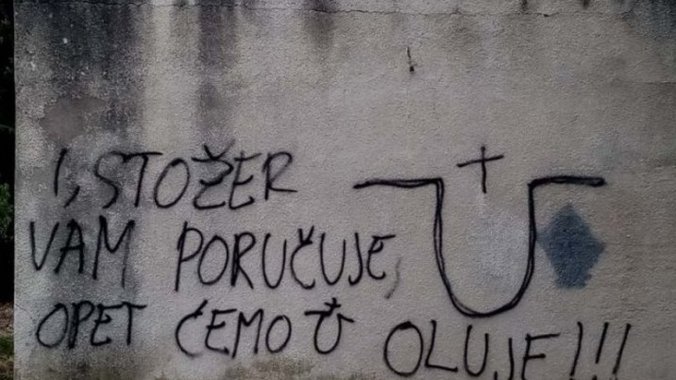 I, STOŽER U
VAM PORUČUJE,
OPET ĆEMO U OLUJE!!!